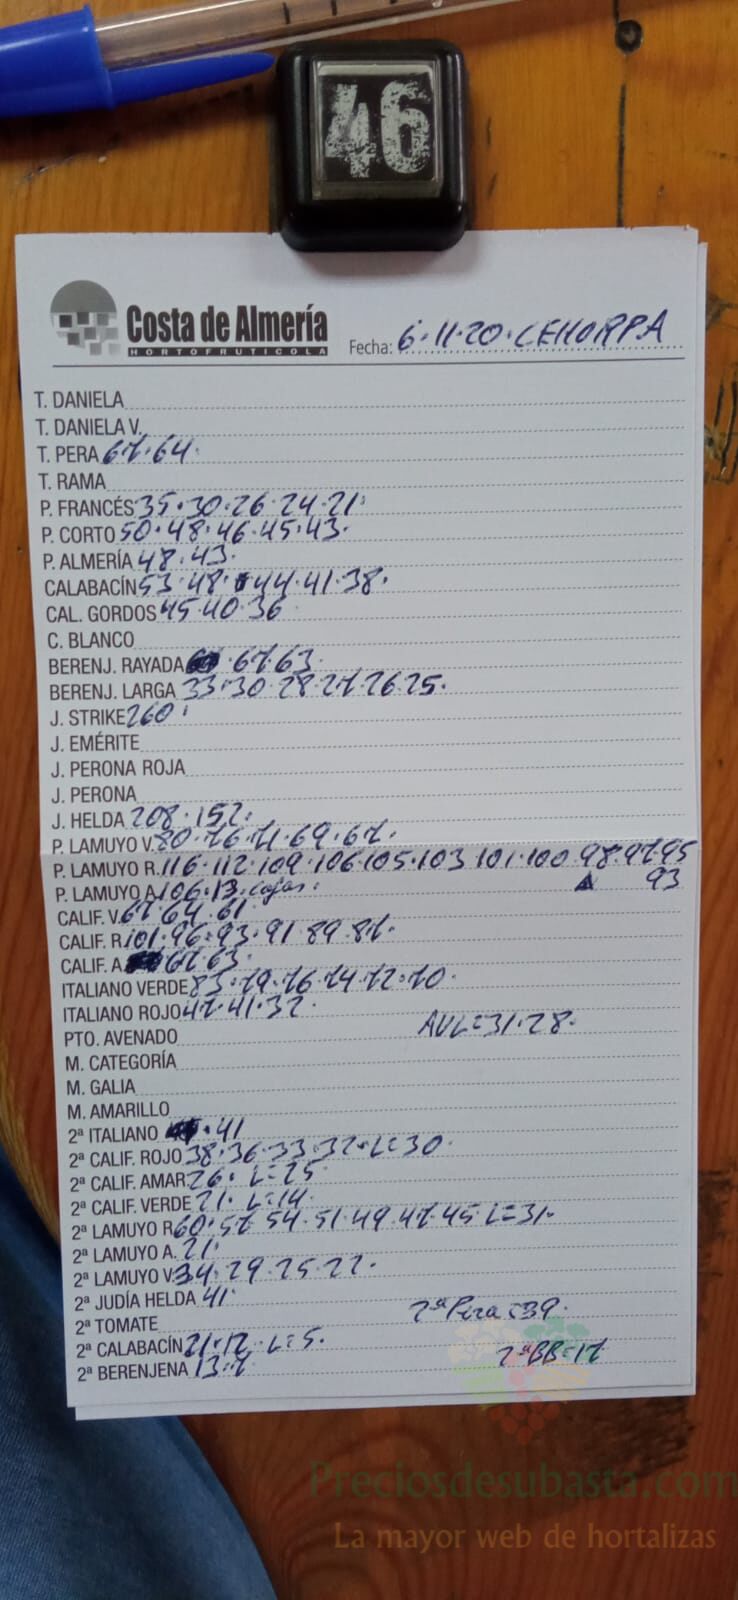 46
Costa de Almería
HORTOFRUTICOLA
Fecha: 6.11.20. CEHORPA
T. DANIELA
T. DANIELA V.
T. PERA 67.64.
T. RAMA
P. FRANCÉS 35.30.26.24.21.
P. CORTO 50.48.46.45.43.
P. ALMERÍA 48.43.
CALABACÍN 53.48.44.41.38.
CAL. GORDOS 45.40.36
C. BLANCO
BERENJ. RAYADA 67.63.
BERENJ. LARGA 33.30.28.27.26.25.
J. STRIKE 260.
J. EMÉRITE
J. PERONA ROJA
J. PERONA
J. HELDA 208.152.
P. LAMUYO V. 80.76.71.69.67.
P. LAMUYO R. 116.112.109.106.105.103 101.100 98.97.95
93
P. LAMUYO A. 106.13. cajas.
CALIF. V. 67.64.61
CALIF. R. 101.96.93.91.89.87.
CALIF. A. 67.63.
ITALIANO VERDE 83.79.76.74.72.70.
ITALIANO ROJO 47.41.32.
PTO. AVENADO AVL=31.28.
M. CATEGORÍA
M. GALIA
M. AMARILLO
2ª ITALIANO .41
2ª CALIF. ROJO 38.36.33.32.L=30.
2ª CALIF. AMAR. 26. L=25
2ª CALIF. VERDE 21. L=14.
2ª LAMUYO R. 60.57 54.51.49.47.45 L=31.
2ª LAMUYO A. 21.
2ª LAMUYO V. 34.29.25.22.
2ª JUDÍA HELDA 41
2ª TOMATE 2ª Pera=39.
2ª CALABACÍN 21.12. L=5.
2ª BB=17
2ª BERENJENA 13.7
Preciosdesubasta.com
La mayor web de hortalizas